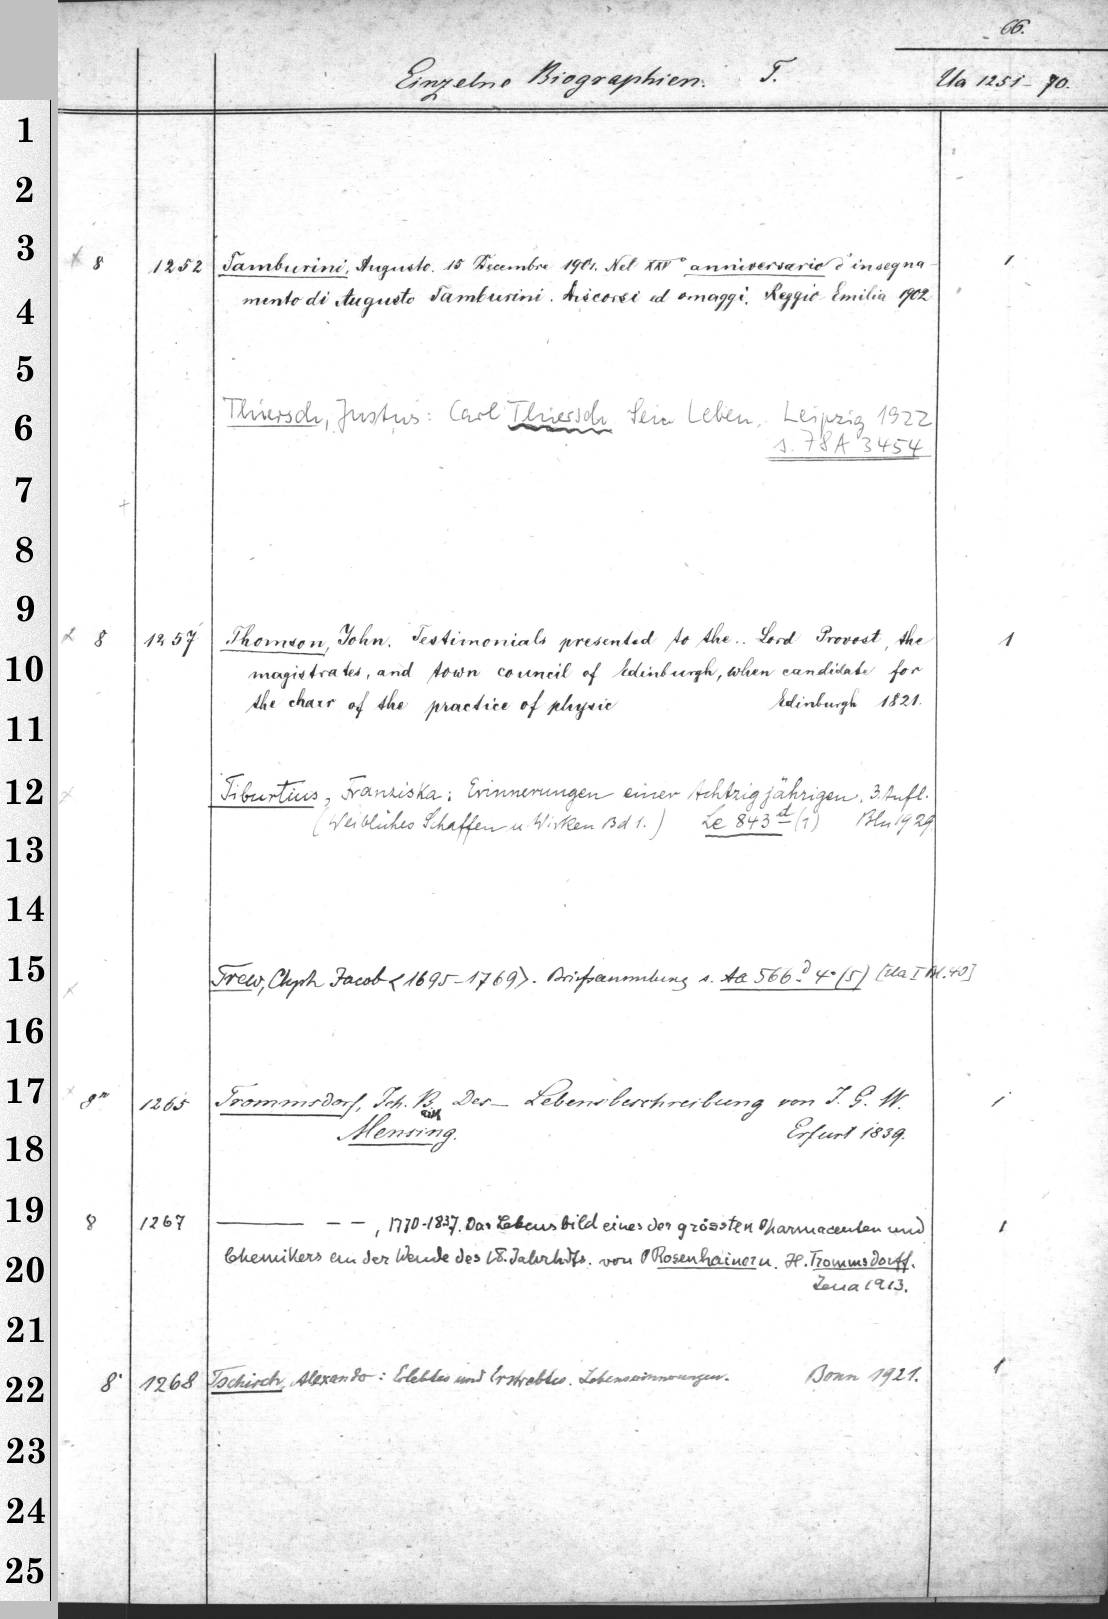 66.
Einzelne Biographien. T. Ua 1251-70.
1
2
3
8 1252 Tamburini, Augusto. 15 Dicembre 1901. Nel XXV° anniversario d'insegna- 1
4
mento di Augusto Tamburini. Discorsi ed omaggi. Reggio Emilia 1902
5
6
Thiersch, Justus: Carl Thiersch Sein Leben. Leipzig 1922
s. 78 A 3454
7
8
9
8 1257 Thomson, John. Testimonials presented to the.. Lord Provost, the 1
10
magistrates, and town council of Edinburgh, when candidate for
the chair of the practice of physic Edinburgh 1821.
11
12
Tiburtius, Franziska: Erinnerungen einer Achtzigjährigen. 3. Aufl.
(Weibliches Schaffen u. Wirken Bd 1.) Le 843 d (1) Bln 1929
13
14
15
Trew, Chph Jacob <1695-1769>. Briefsammlung s. Aa 566 d 4° (5) [Ua I Bl. 40]
16
17
8m 1265 Trommsdorf, Joh. B. Des — Lebensbeschreibung von J. G. W. 1
18
Mensing. Erfurt 1839.
19
8 1267 ——— — —, 1770-1837. Das Lebensbild eines der grössten Pharmaceuten und 1
20
Chemikers an der Wende des 18. Jahrhdts. von P Rosenhainer u. H. Trommsdorff.
Jena 1913.
21
22
8° 1268 Tschirch, Alexander: Erlebtes und Erstrebtes. Lebenserinnerungen. Bonn 1921. 1
23
24
25